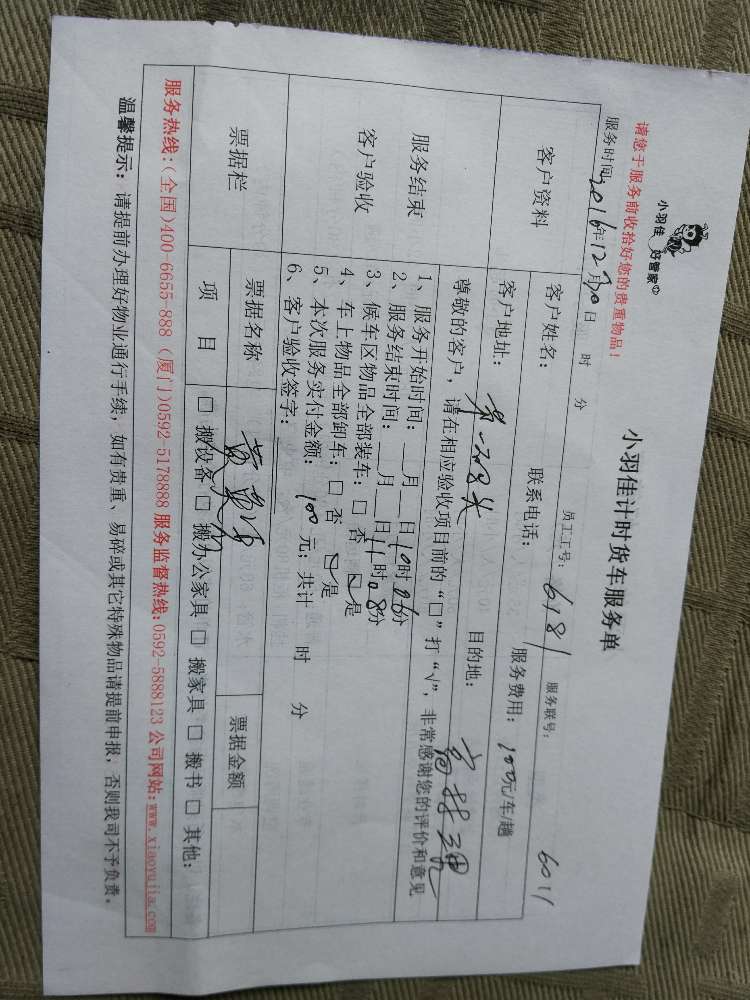 小羽佳 好管家
小羽佳计时货车服务单
请您于服务前收拾好您的贵重物品!
服务时间: 2016年12月30日 时 分 员工工号: 6181 服务联号: 6011
客户资料 客户姓名: 联系电话: 服务费用: 100元/车/趟
客户地址: 第一码头 目的地:
服务结束 客户验收
尊敬的客户,请在相应验收项目前的“□”打“√”,非常感谢您的评价和意见
1、服务开始时间: __月__日10时06分
2、服务结束时间: __月__日11时08分
3、候车区物品全部装车: □ 否 ☑是
4、车上物品全部卸车: □ 否 ☑是
5、本次服务实付金额: 100元; 共计 时 分
6、客户验收签字:
票据栏 票据名称 票据金额
项 目 □ 搬设备 □ 搬办公家具 □ 搬家具 □ 搬书 □ 其他:
服务热线:(全国)400-6655-888 (厦门)0592-5178888 服务监督热线:0592-5888123 公司网站:www.xiaoyujia.com
温馨提示: 请提前办理好物业通行手续, 如有贵重、易碎或其它特殊物品请提前申报, 否则我司不予负责。